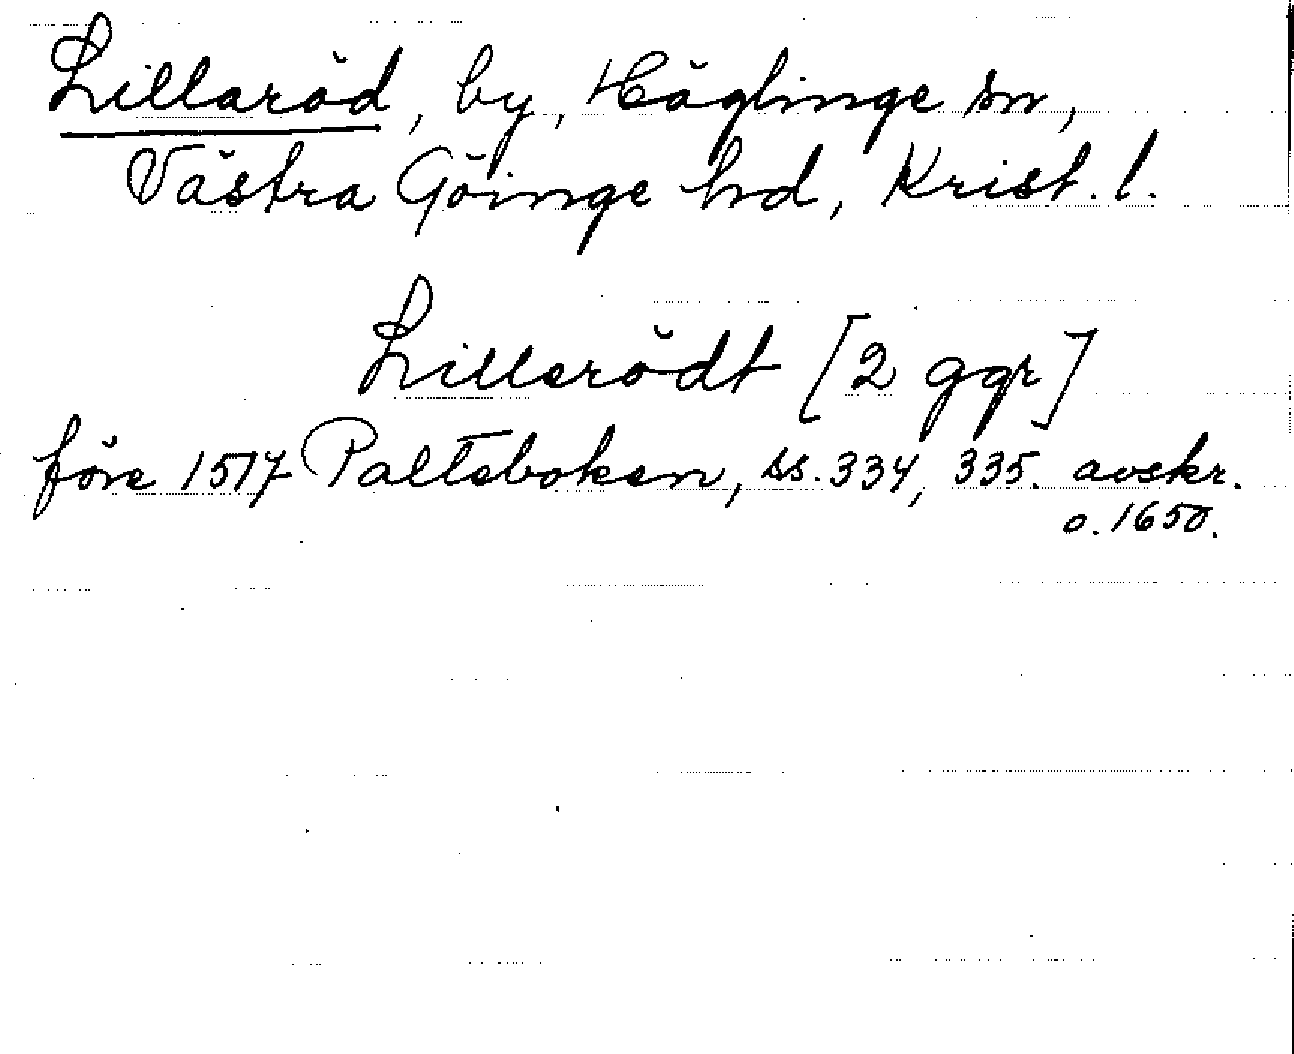 Lillaröd, by, Häglinge sn,
Västra Göinge hd, Krist. l.
Lillerödt [2 ggr]
före 1517 Palteboken, ss. 334, 335. avskr.
o. 1650.